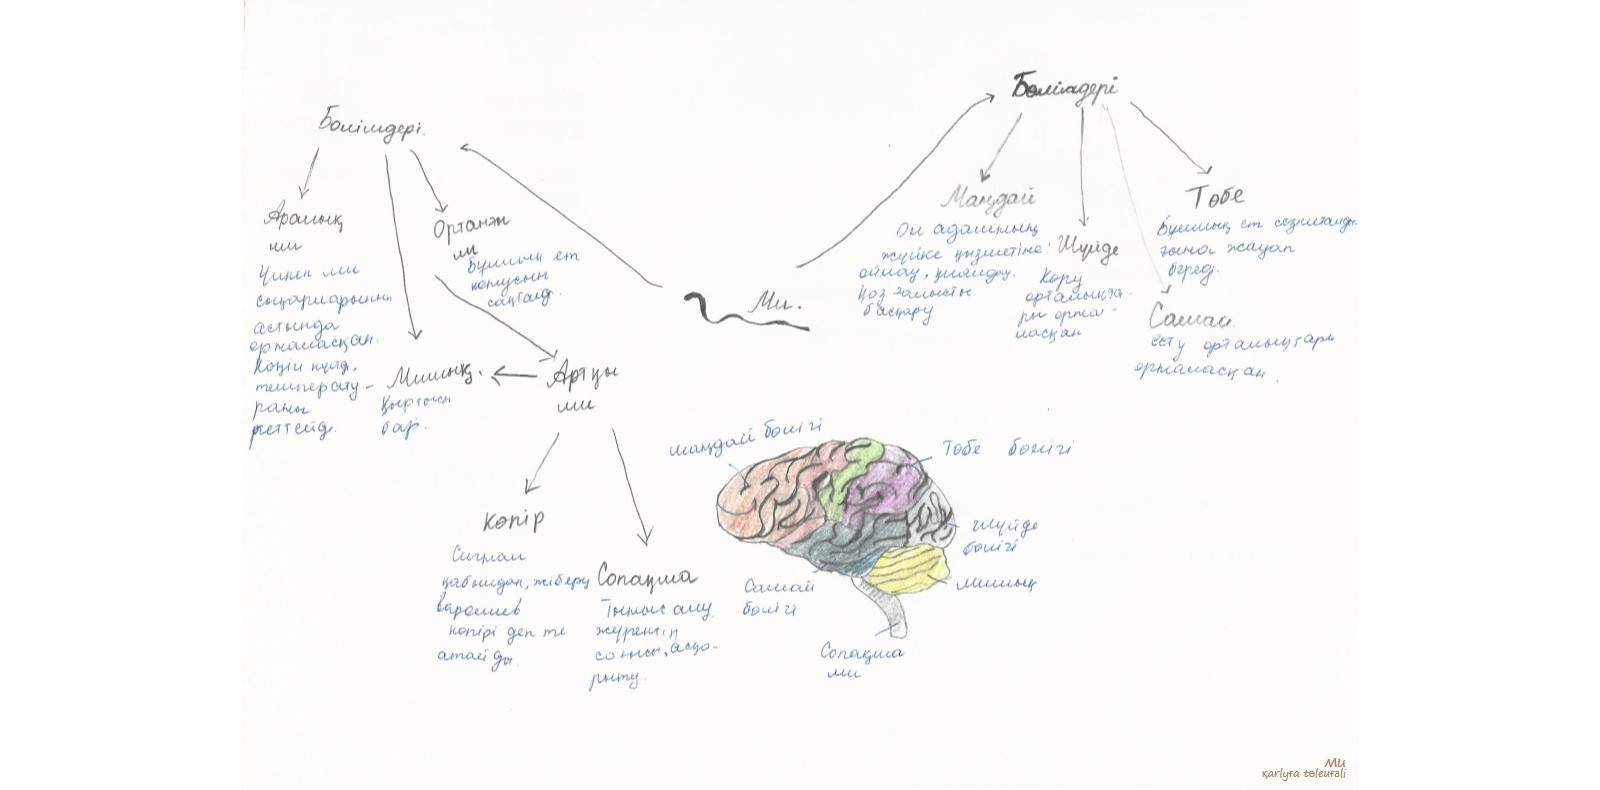 Бөлімдері.
Аралық
ми
Үлкен ми
сыңарларының
астында
орналасқан.
Көңіл күйд,
температу-
раны
реттейді.
Ортаңғы
ми
Бұлшық ет
тонусын
сақтайд.
Мишық.
Қыртысы
бар.
Артқы
ми
көпір
Сигнал
қабылдап, жіберу
варолиев
көпірі деп те
атайды.
Сопақша
Тыныс алу
жүректің
соғысы, асқо-
рыту.
Ми.
Бөлімдері
Маңдай
Ол адамның
жүйке қызметіне:
ойлау, қиялдау.
Қозғалысты
басқару
Шүйде
Көру
орталықта-
ры орна-
ласқан
Төбе
Бұлшық ет сезімталды-
ғына жауап
береді.
Самай.
есту орталықтары
орналасқан.
маңдай бөлігі
Төбе бөлігі
Шүйде
бөлігі
мишық
Самай
бөлігі
Сопақша
ми
Ми
қarlyfa tөleufali